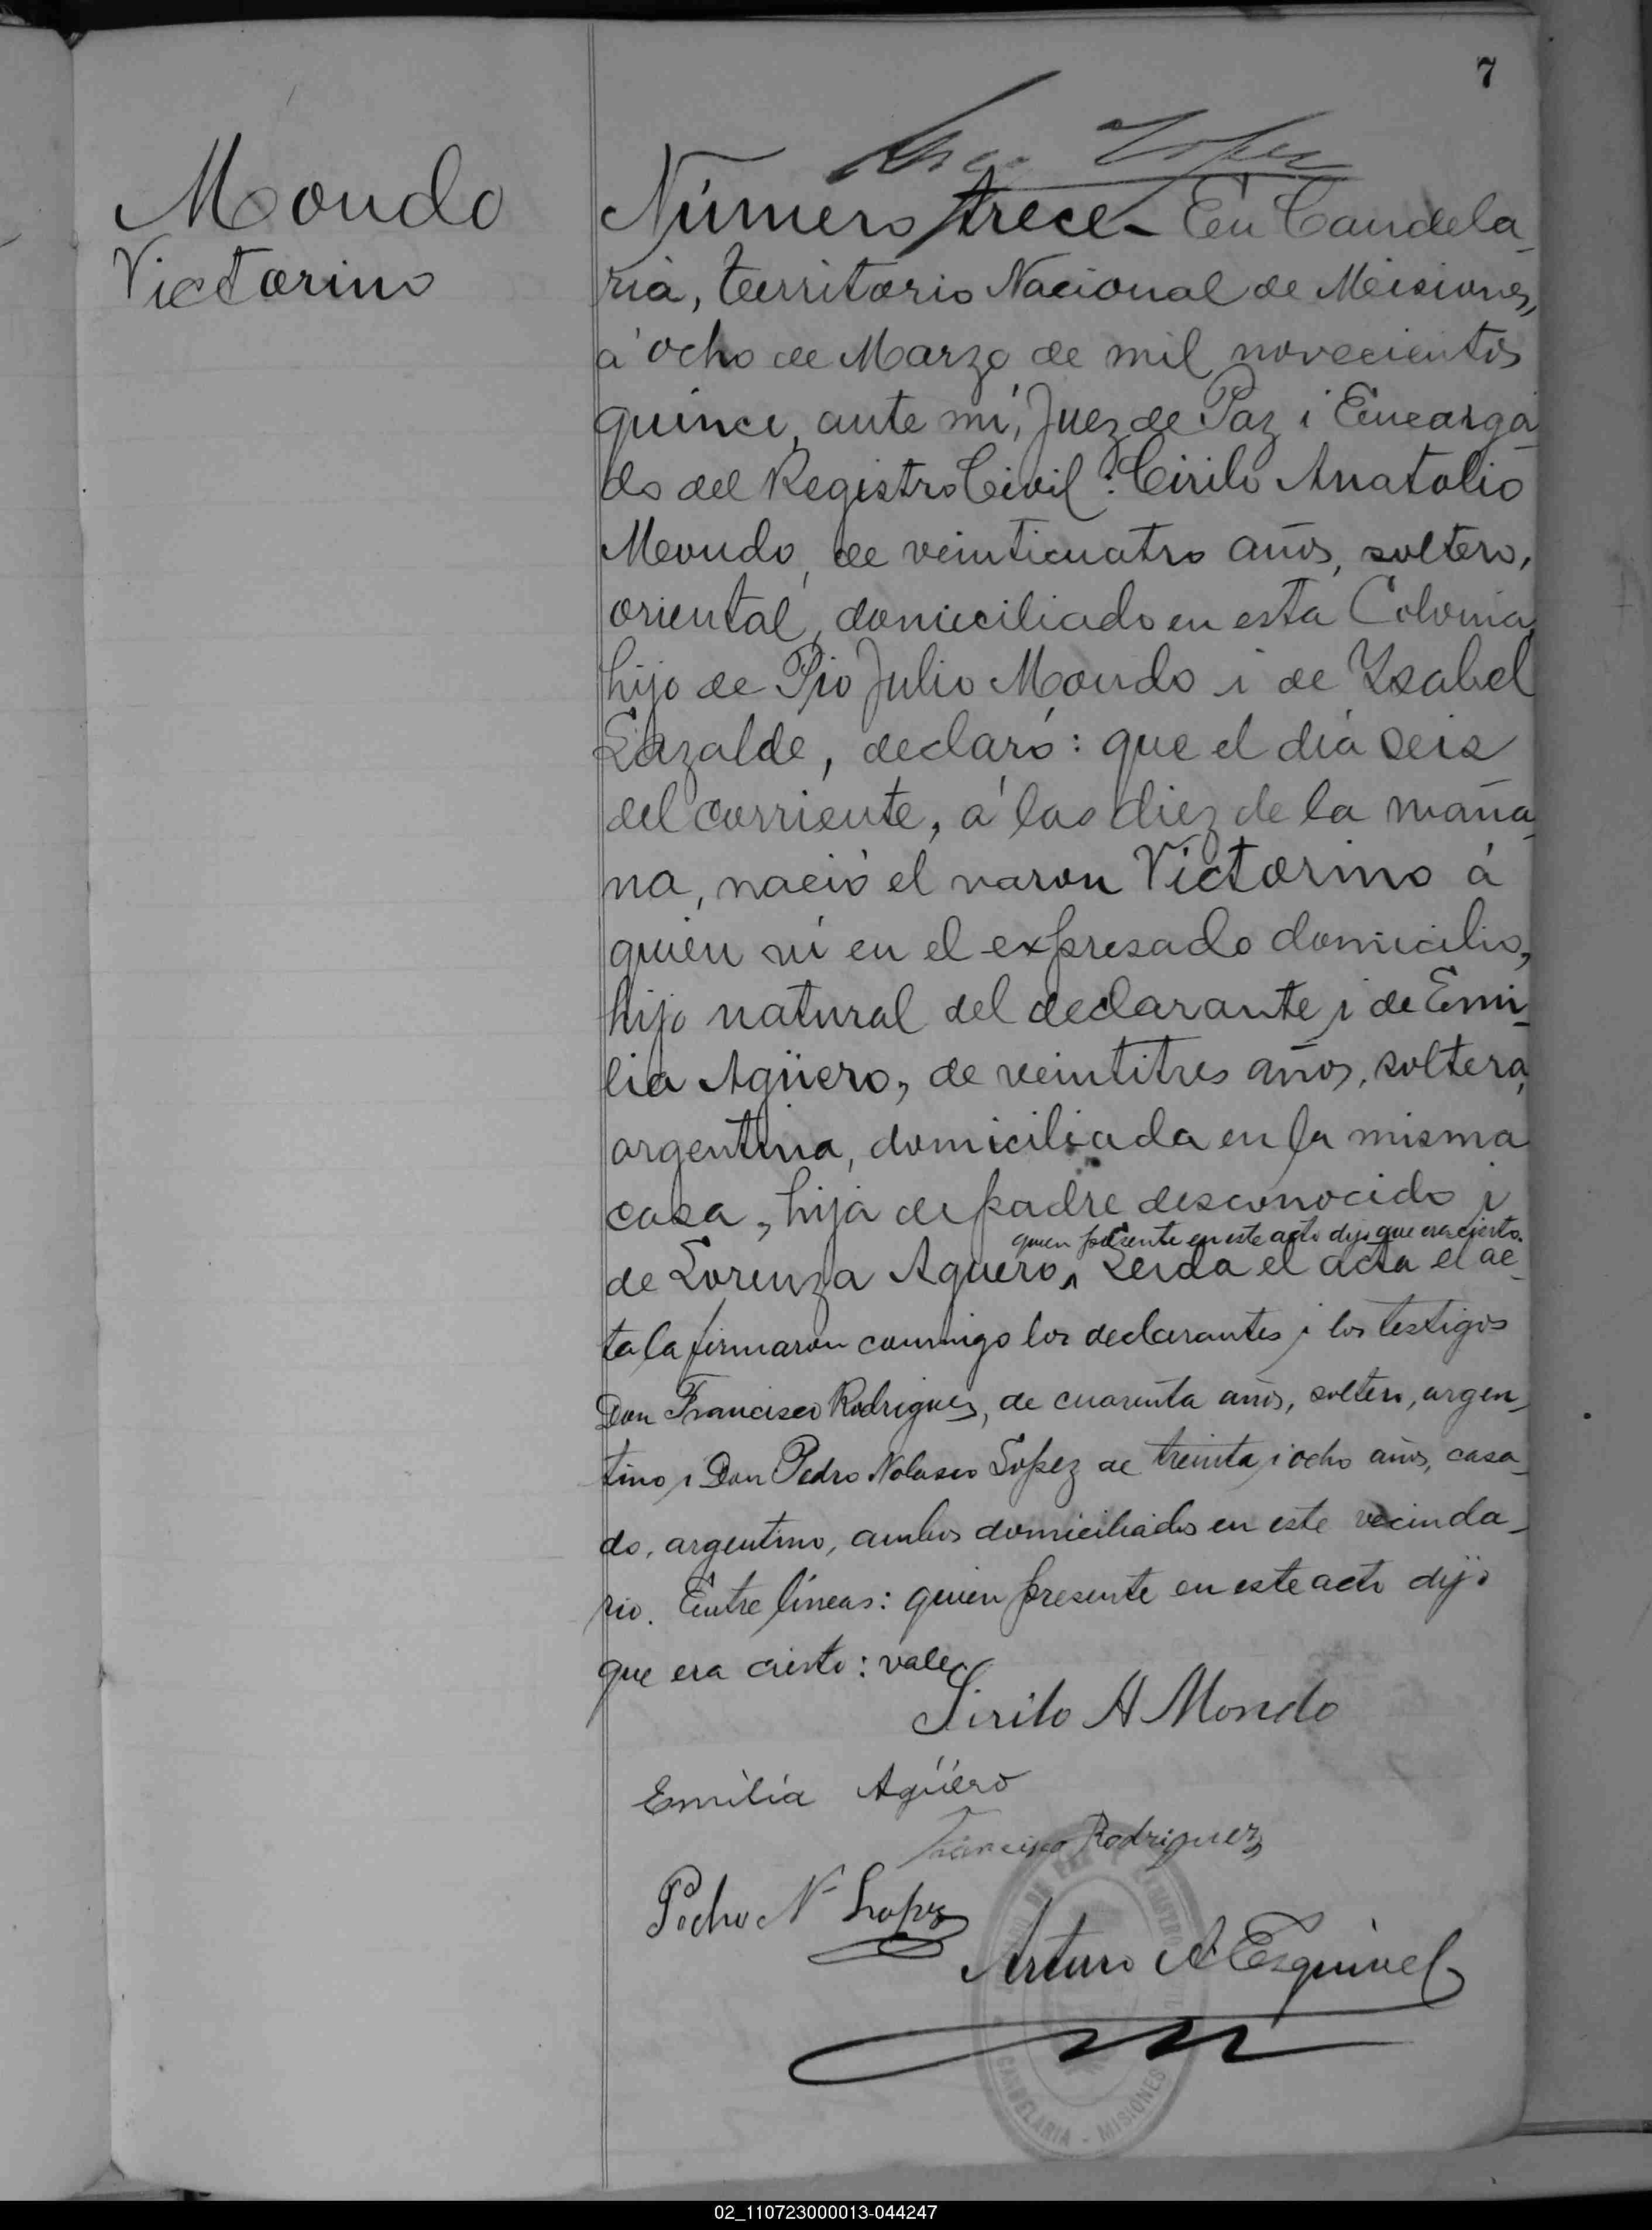 7
Lopez
Mondo
Victorino
Número trece. En Candela-
ria, territorio Nacional de Misiones,
á ocho de Marzo de mil novecientos
quince, ante mí, Juez de Paz i Encarga-
do del Registro Civil: Cirilo Anatolio
Mondo, de veinticuatro años, soltero,
oriental, domiciliado en esta Colonia,
hijo de Pio Julio Mondo i de Ysabel
Lazalde, declaró: que el día seis
del corriente, á las diez de la maña-
na, nació el varon Victorino á
quien ví en el expresado domicilio,
hijo natural del declarante i de Emi-
lia Agüero, de veintitres años, soltera,
argentina, domiciliada en la misma
casa, hija de padre desconocido i
quien presente en este acto dijo que era cierto.
de Lorenza Aguero. Leida el acta el ac-
ta la firmaron conmigo los declarantes i los testigos
Don Francisco Rodriguez, de cuarenta años, soltero, argen-
tino i Don Pedro Nolasco Lopez de treinta i ocho años, casa-
do, argentino, ambos domiciliados en este vecinda-
rio. Entre líneas: quien presente en este acto dijo
que era cierto: vale.
Sirilo A Mondo
Emilia Agüero
Francisco Rodriguez
Pedro N Lopez
Arturo A Esquivel
CANDELARIA - MISIONES
02_110723000013-044247